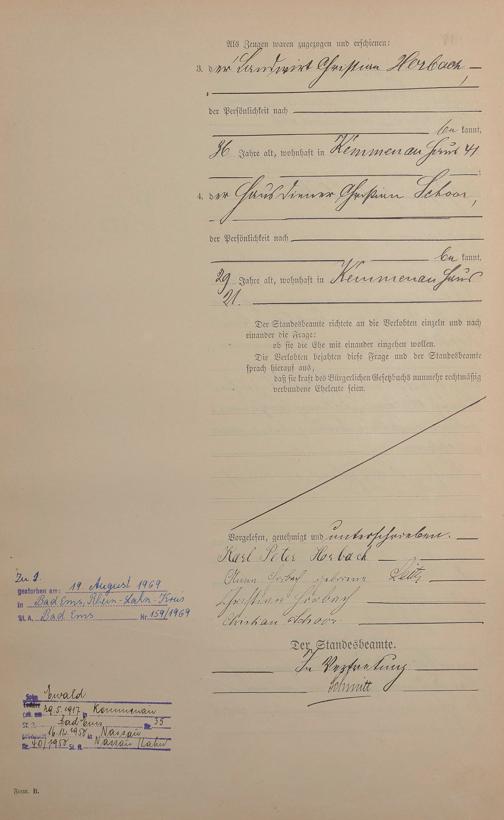 Als Zeugen waren zugezogen und erschienen:
3. der Landwirt Christian Horbach,
der Persönlichkeit nach
bekannt,
36 Jahre alt, wohnhaft in Kemmenau Haus 41
4. der Hausdiener Christian Schoor,
der Persönlichkeit nach
bekannt,
29 Jahre alt, wohnhaft in Kemmenau Haus
21.
Der Standesbeamte richtete an die Verlobten einzeln und nach
einander die Frage:
ob sie die Ehe mit einander eingehen wollen.
Die Verlobten bejahten diese Frage und der Standesbeamte
sprach hierauf aus,
daß sie kraft des Bürgerlichen Gesetzbuchs nunmehr rechtmäßig
verbundene Eheleute seien.
Vorgelesen, genehmigt und unterschrieben.
Karl Peter Horbach
Horbach geborene
Christian Horbach
Christian Schoor
Der Standesbeamte.
In Vertretung
Schmitt
Zu 1.
gestorben am: 19. August 1969
in Bad Ems, Rhein-Lahn-Kreis
St. A. Bad Ems Nr. 159/1969
Sohn Ewald
29.5.1917 in Kemmenau
St. A. Bad Ems Nr. 35
16.12.1950 in Nassau
Nr. 40/1950 St. A. Nassau/Lahn
Form. B.